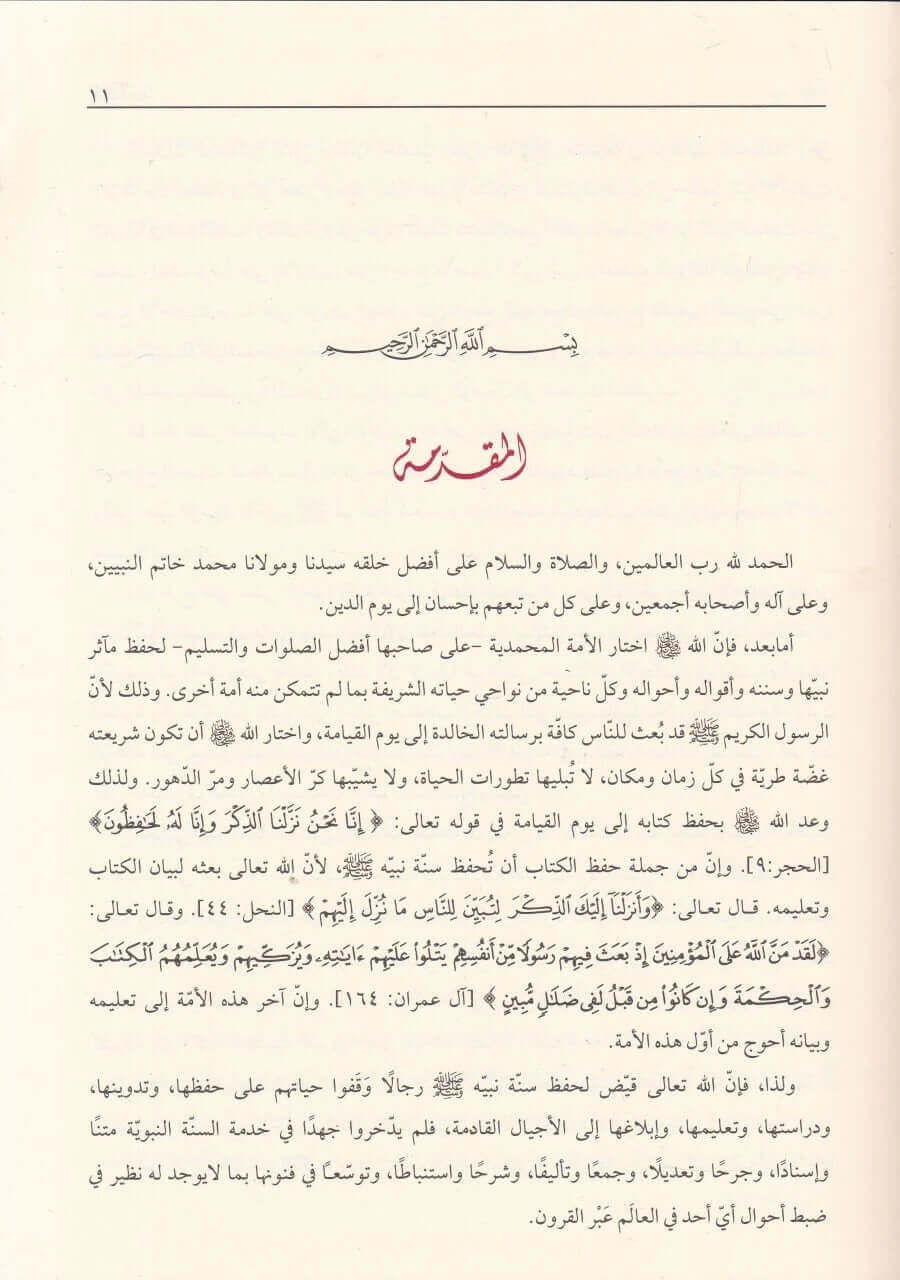 ١١
بِسْمِ ٱللَّهِ ٱلرَّحْمَٰنِ ٱلرَّحِيمِ
المقدّمة
الحمد لله رب العالمين، والصلاة والسلام على أفضل خلقه سيدنا ومولانا محمد خاتم النبيين،
وعلى آله وأصحابه أجمعين، وعلى كل من تبعهم بإحسان إلى يوم الدين.
أمابعد، فإنّ الله ﷻ اختار الأمة المحمدية -على صاحبها أفضل الصلوات والتسليم- لحفظ مآثر
نبيّها وسننه وأقواله وأحواله وكلّ ناحية من نواحي حياته الشريفة بما لم تتمكن منه أمة أخرى. وذلك لأنّ
الرسول الكريم ﷺ قد بُعث للنّاس كافّة برسالته الخالدة إلى يوم القيامة، واختار الله ﷻ أن تكون شريعته
غضّة طريّة في كلّ زمان ومكان، لا تُبليها تطورات الحياة، ولا يشيّبها كرّ الأعصار ومرّ الدّهور. ولذلك
وعد الله ﷻ بحفظ كتابه إلى يوم القيامة في قوله تعالى: ﴿ إِنَّا نَحْنُ نَزَّلْنَا ٱلذِّكْرَ وَإِنَّا لَهُۥ لَحَٰفِظُونَ﴾
[الحجر:٩]. وإنّ من جملة حفظ الكتاب أن تُحفظ سنّة نبيّه ﷺ، لأنّ الله تعالى بعثه لبيان الكتاب
وتعليمه. قال تعالى: ﴿وَأَنزَلْنَآ إِلَيْكَ ٱلذِّكْرَ لِتُبَيِّنَ لِلنَّاسِ مَا نُزِّلَ إِلَيْهِمْ ﴾ [النحل: ٤٤]. وقال تعالى:
﴿لَقَدْ مَنَّ ٱللَّهُ عَلَى ٱلْمُؤْمِنِينَ إِذْ بَعَثَ فِيهِمْ رَسُولًا مِّنْ أَنفُسِهِمْ يَتْلُوا۟ عَلَيْهِمْ ءَايَٰتِهِۦ وَيُزَكِّيهِمْ وَيُعَلِّمُهُمُ ٱلْكِتَٰبَ
وَٱلْحِكْمَةَ وَإِن كَانُوا۟ مِن قَبْلُ لَفِى ضَلَٰلٍ مُّبِينٍ ﴾ [آل عمران: ١٦٤]. وإنّ آخر هذه الأمّة إلى تعليمه
وبيانه أحوج من أوّل هذه الأمة.
ولذا، فإنّ الله تعالى قيّض لحفظ سنّة نبيّه ﷺ رجالًا وَقَفوا حياتهم على حفظها، وتدوينها،
ودراستها، وتعليمها، وإبلاغها إلى الأجيال القادمة، فلم يدّخروا جهدًا في خدمة السنّة النبويّة متنًا
وإسنادًا، وجرحًا وتعديلًا، وجمعًا وتأليفًا، وشرحًا واستنباطًا، وتوسّعاً في فنونها بما لايوجد له نظير في
ضبط أحوال أيّ أحد في العالَم عَبْر القرون.